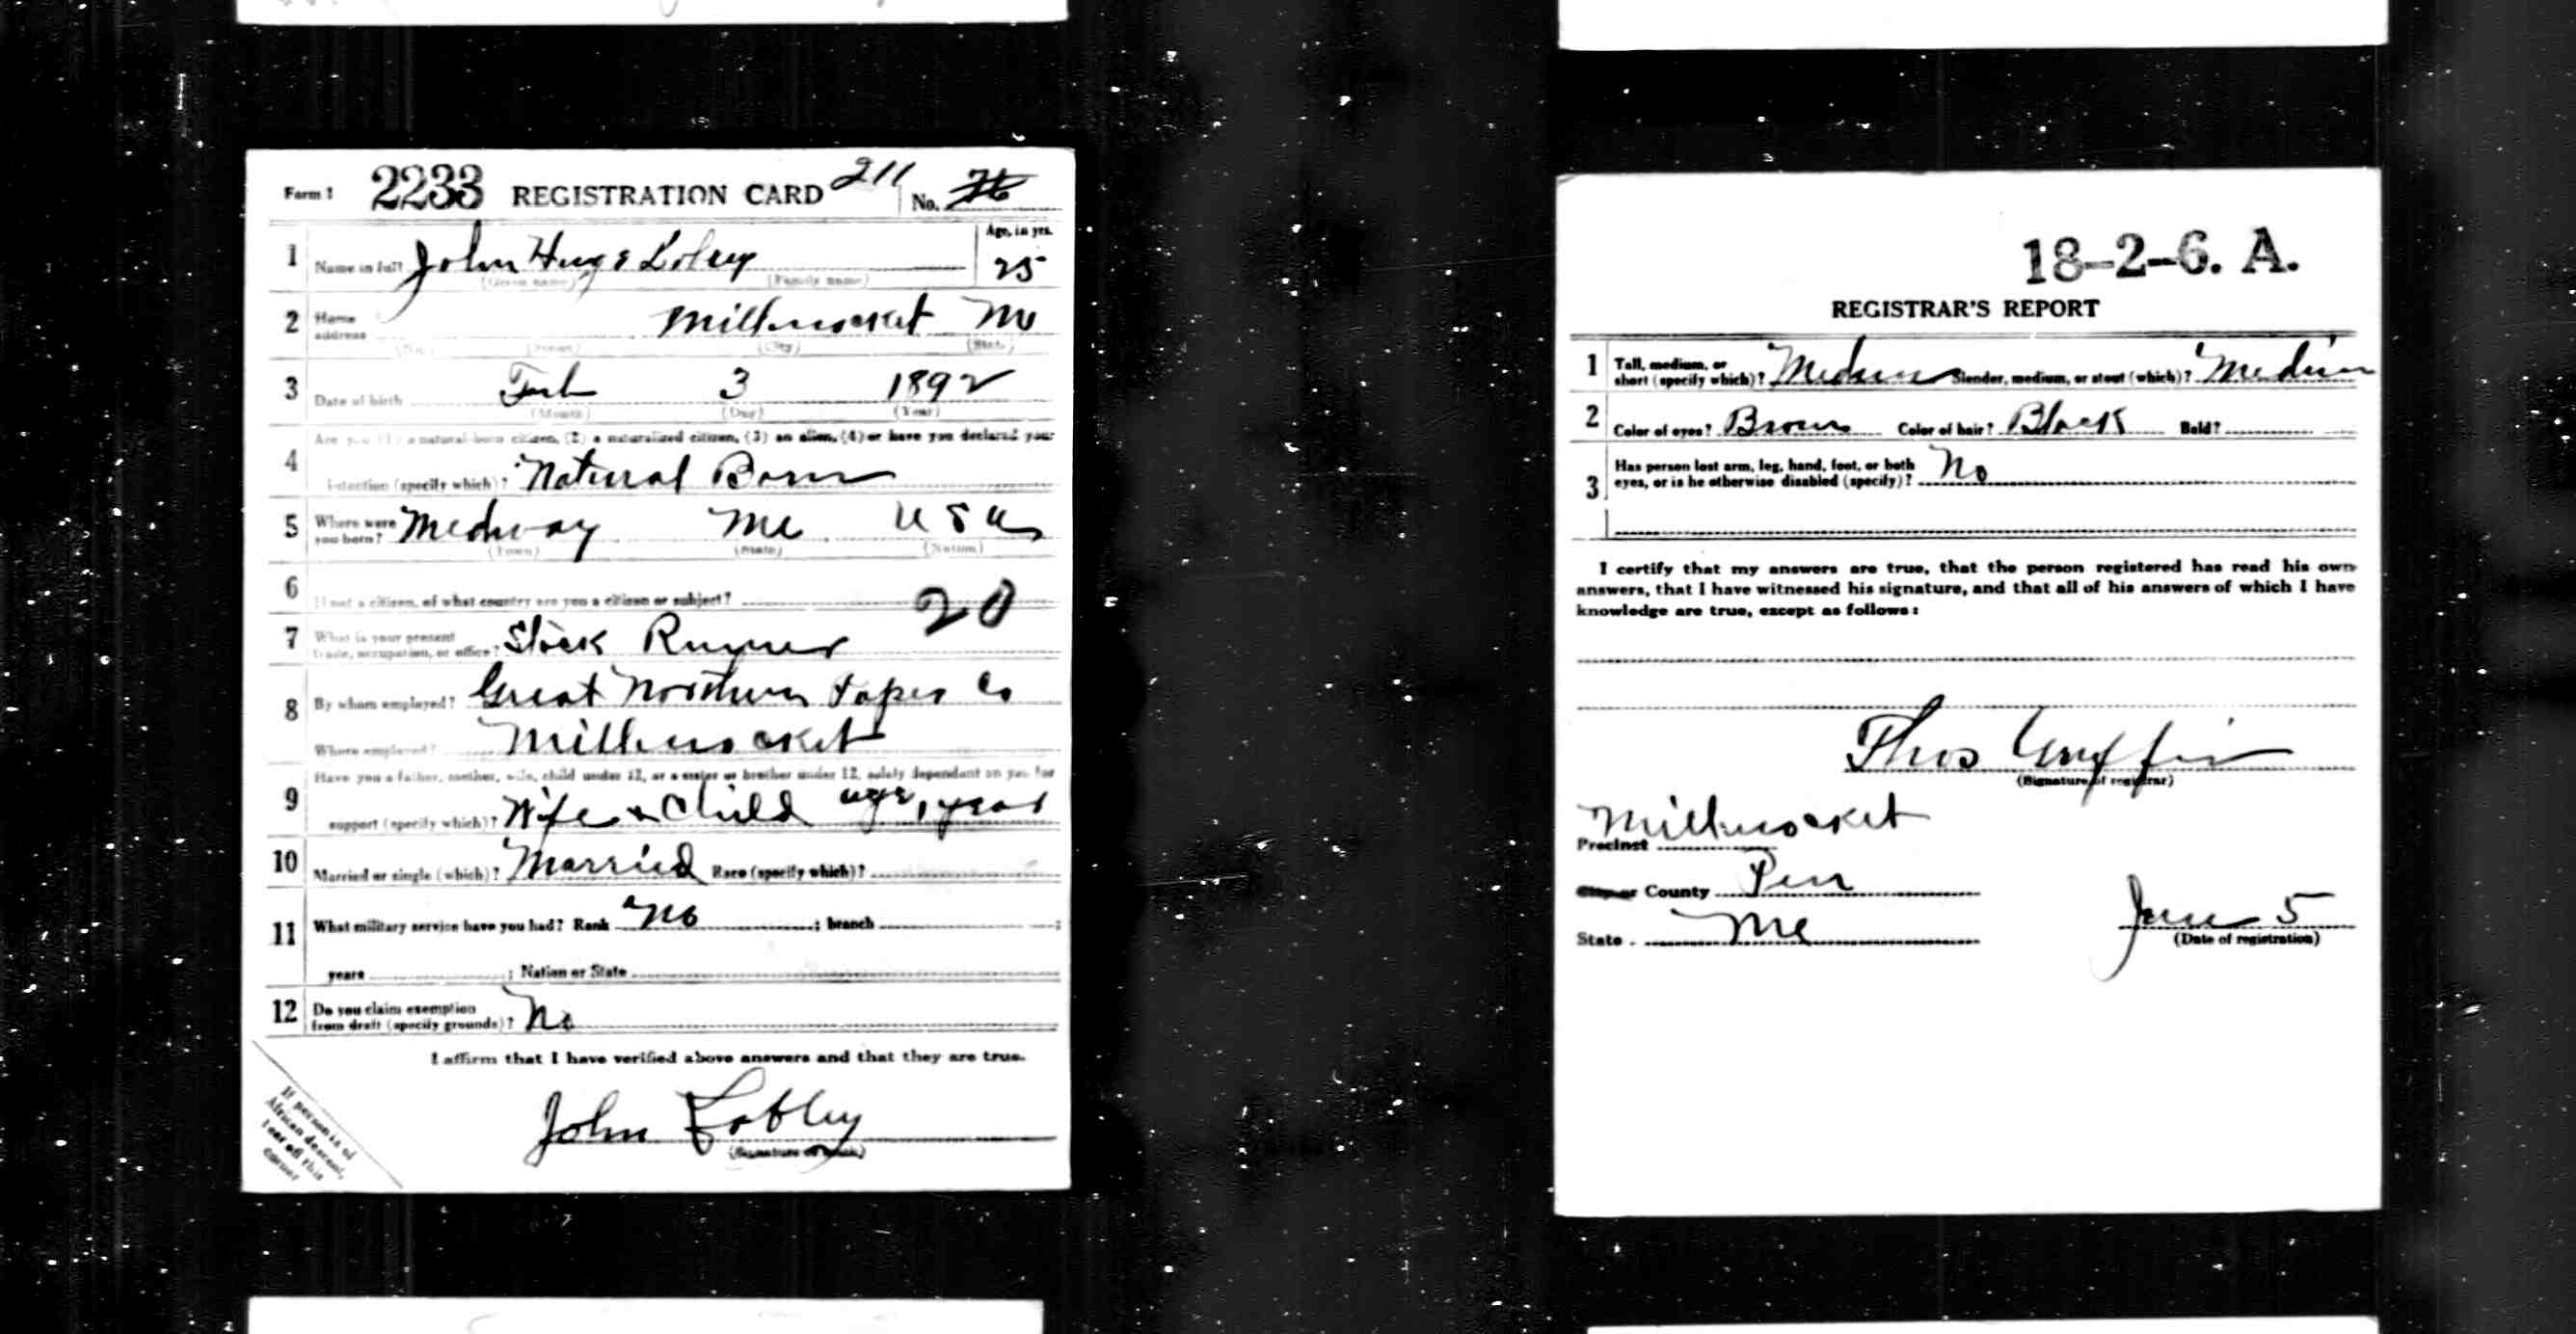 Form 1 2233 REGISTRATION CARD 211 No. 76
1 Name in full John Hugo Lobley Age, in yrs. 25
(Given name) (Family name)
2 Home address Millinocket Me
(No.) (Street) (City) (State)
3 Date of birth Feb 3 1892
(Month) (Day) (Year)
Are you (1) a natural-born citizen, (2) a naturalized citizen, (3) an alien, (4) or have you declared your
4 intention (specify which)? Natural Born
5 Where were you born? Medway Me USA
(Town) (State) (Nation)
6 If not a citizen, of what country are you a citizen or subject?
20
7 What is your present trade, occupation, or office? Stock
8 By whom employed? Great Northern Paper Co
Where employed? Millinocket
Have you a father, mother, wife, child under 12, or a sister or brother under 12, solely dependent on you for
9 support (specify which)? Wife & Child age 1 year
10 Married or single (which)? Married Race (specify which)?
11 What military service have you had? Rank No ; branch ;
years ; Nation or State
12 Do you claim exemption from draft (specify grounds)? No
I affirm that I have verified above answers and that they are true.
John Lobley
(Signature or mark)
If person is of
African descent,
tear off this
corner
18-2-6. A.
REGISTRAR'S REPORT
1 Tall, medium, or short (specify which)? Medium Slender, medium, or stout (which)? Medium
2 Color of eyes? Brown Color of hair? Black Bald?
3 Has person lost arm, leg, hand, foot, or both eyes, or is he otherwise disabled (specify)? No
I certify that my answers are true, that the person registered has read his own
answers, that I have witnessed his signature, and that all of his answers of which I have
knowledge are true, except as follows:
Thos Griffin
(Signature of registrar)
Precinct Millinocket
City or County Pen
State Me June 5
(Date of registration)